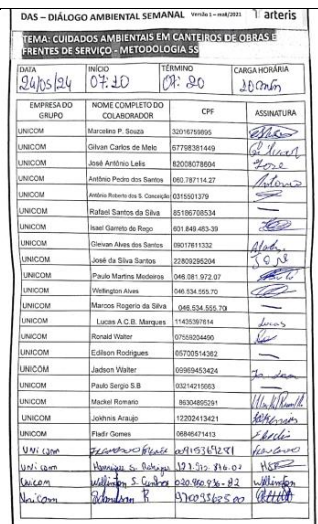 DAS – DIÁLOGO AMBIENTAL SEMANAL Versão 1 – mai/2021 arteris
TEMA: CUIDADOS AMBIENTAIS EM CANTEIROS DE OBRAS E
FRENTES DE SERVIÇO - METODOLOGIA 5S
DATA INÍCIO TÉRMINO CARGA HORÁRIA
24/05/24 07:20 07:20 20 min
EMPRESA DO GRUPO NOME COMPLETO DO COLABORADOR CPF ASSINATURA
UNICOM Marcelino P. Souza 32016759895
UNICOM Gilvan Carlos de Melo 67798381449
UNICOM José Antônio Lelis 82008078604 Jose
UNICOM Antônio Pedro dos Santos 060.787114.27 Antonio
UNICOM Antônio Roberto dos S. Conceição 0315501379
UNICOM Rafael Santos da Silva 85186708534 —
UNICOM Isael Garreto do Rego 601.849.463-39
UNICOM Gleivan Alves dos Santos 09017611332
UNICOM José da Silva Santos 22809295204 José
UNICOM Paulo Martins Medeiros 046.081.972.07
UNICOM Wellington Alves 046.534.555.70
UNICOM Marcos Rogerio da Silva 046.534.555.70 —
UNICOM Lucas A.C.B. Marques 11435397614 Lucas
UNICOM Ronald Walter 07559204490
UNICOM Edilson Rodrigues 65700514362 —
UNICOM Jadson Walter 09969453424
UNICOM Paulo Sergio S.B 03214215663 —
UNICOM Mackel Romario 86304895291
UNICOM Jokhnis Araujo 12202413421
UNICOM Fladir Gomes 06846471413
Unicom Francisco 04153691281 Francisco
Unicom Henrique S.
Unicom Wellington S. Cunha 020.860.936-82 Wellington
Unicom R 97003363500